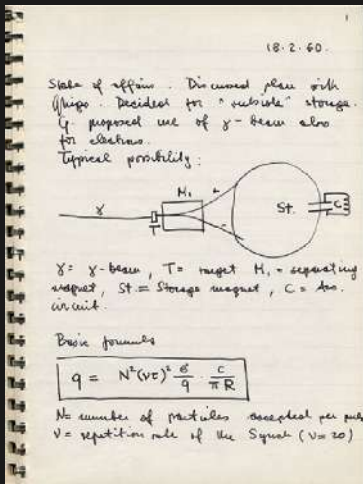 1
18.2.60.
State of affairs. Discussed plan with
Ghigo. Decided for "outside" storage.
G. proposed use of γ-beam also
for electrons.
Typical possibility:
M₁
+
γ
St.
C
T
-
γ = γ-beam, T = target M₁ = separating
magnet, St = Storage magnet, C = Acc.
circuit.
Basic formula
q = N²(ντ)² σ/q · c/πR
N = number of particles accepted per pulse
ν = repetition rate of the Synch (ν=20)